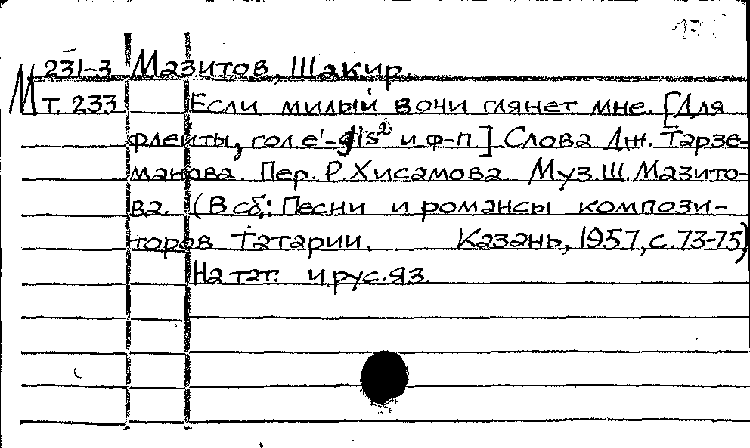 М 231-3 Мазитов, Шакир.
Т. 233 Если милый в очи глянет мне. [Для
флейты, гол e'-gis² и ф-п.] Слова Дж. Тарзе-
манова. Пер. Р. Хисамова. Муз. Ш. Мазито-
ва. (В сб.: Песни и романсы компози-
торов Татарии. Казань, 1957, с. 73-75)
На тат. и рус. яз.